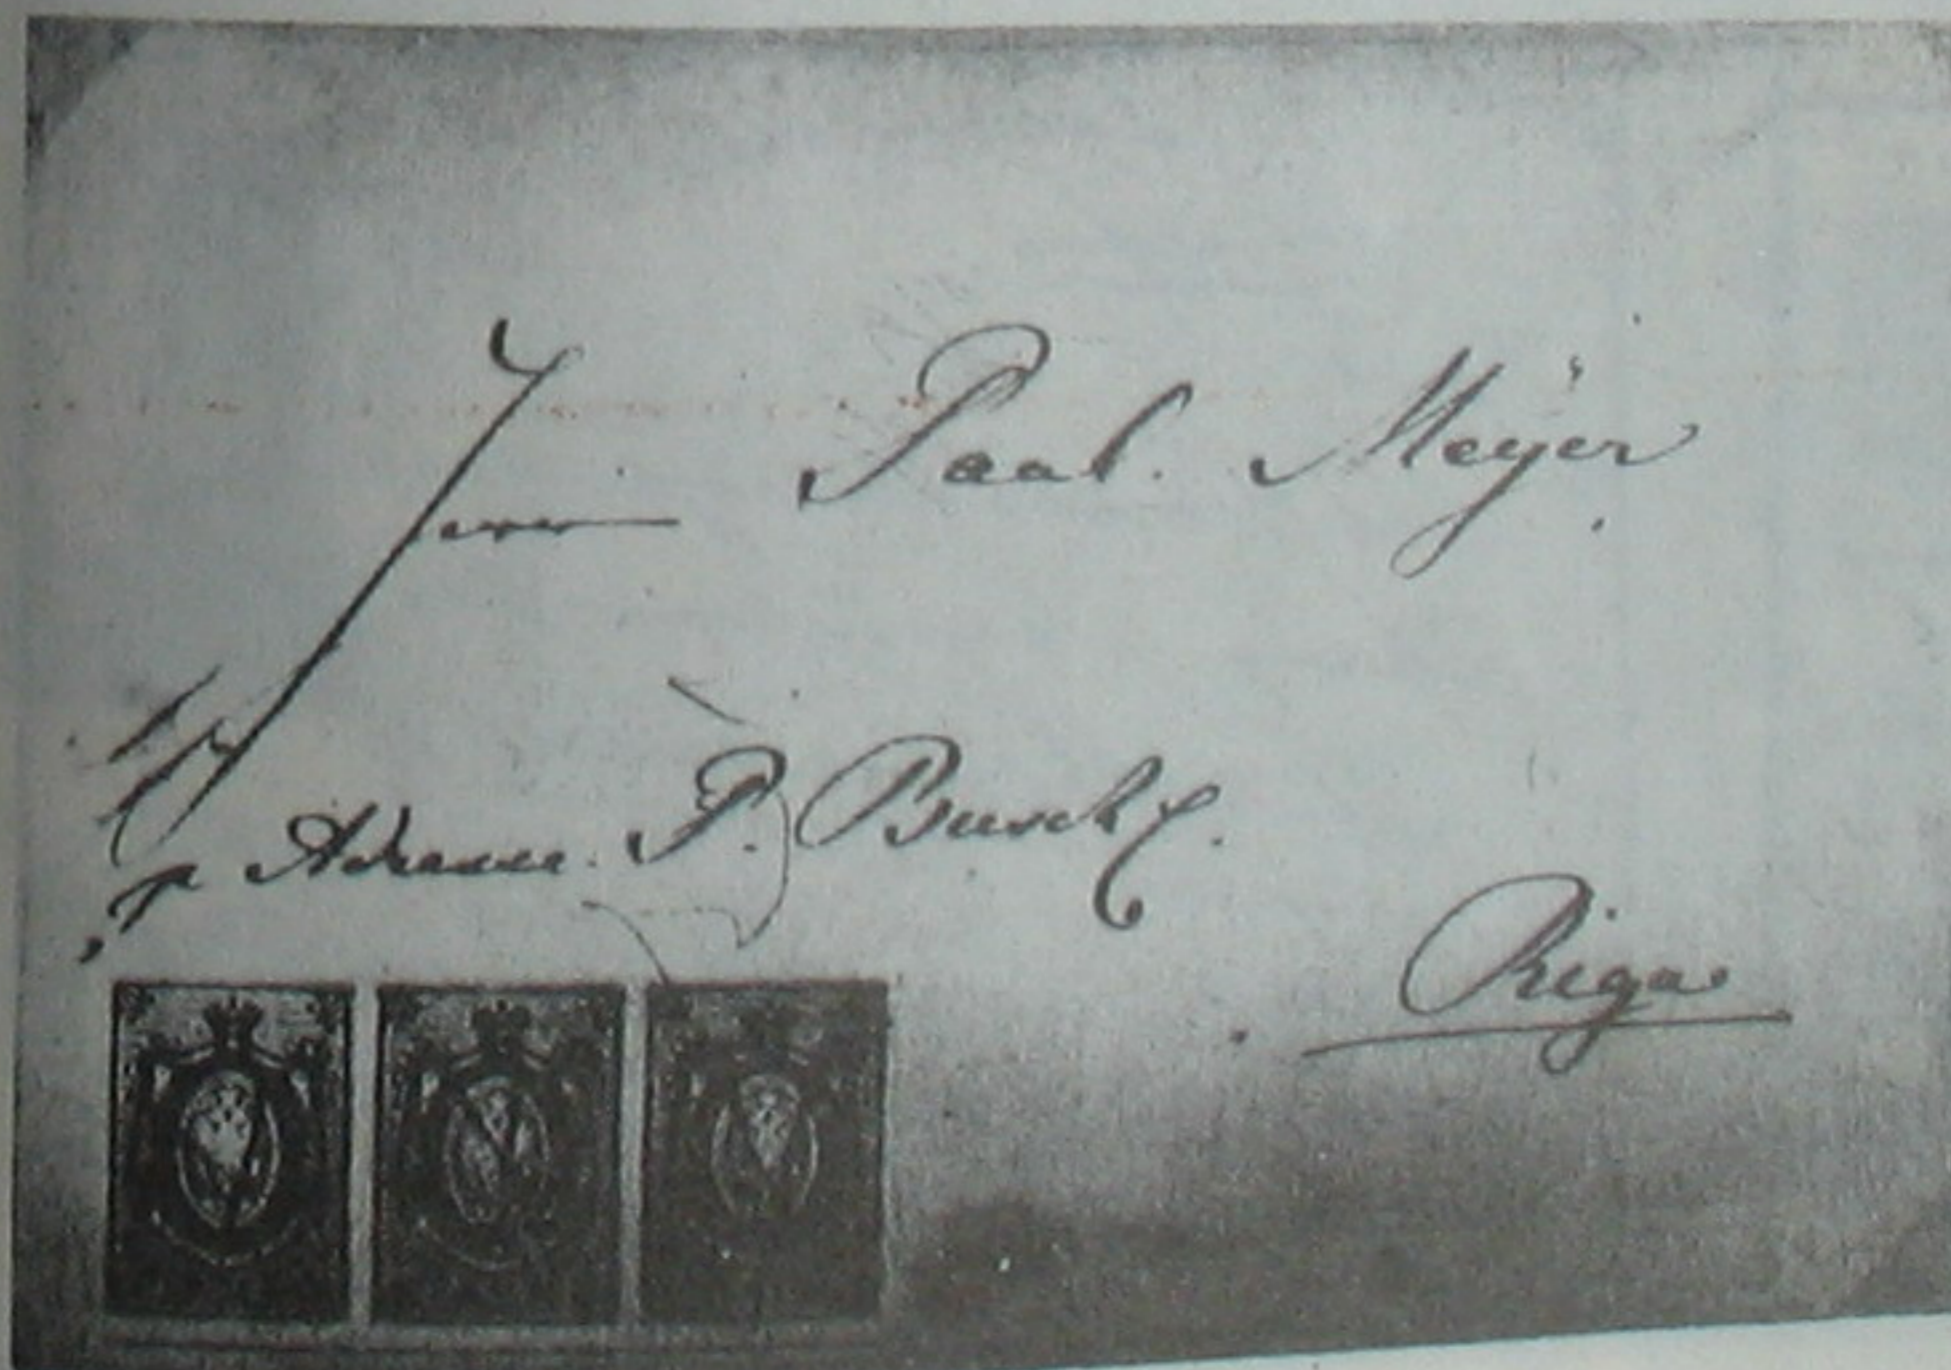 Herrn Paul. Meÿer
p Adresse. P. Busch.
Riga